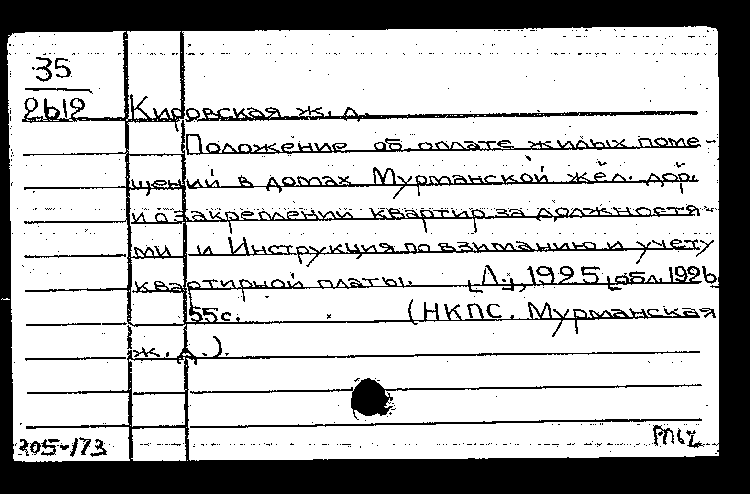 35
2612
Кировская ж. д.
Положение об оплате жилых поме-
щений в домах Мурманской жел. дор.
и о закреплении квартир за должностя-
ми и Инструкция по взиманию и учету
квартирной платы. [Л.], 1925, [обл. 1926
55с. (НКПС. Мурманская
ж. д.).
305-173